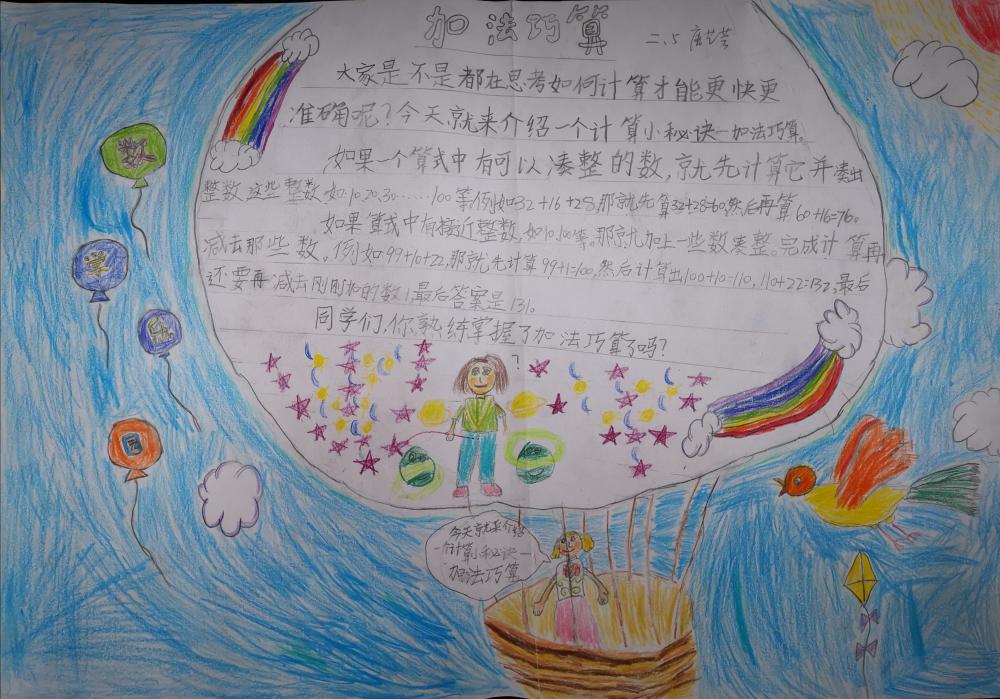 加法巧算
二、5
大家是不是都在思考如何计算才能更快更
准确呢？今天就来介绍一个计算小秘诀—加法巧算。
如果一个算式中有可以凑整的数，就先计算它并凑出
整数，这些整数如10、20、30……100等。例如32+16+28，那就先算32+28=60，然后再算60+16=76。
如果算式中有接近整数，如10、100等。那就加上一些数凑整。完成计算再
减去那些数。例如99+10+22，那就先计算99+1=100，然后计算出100+10=110，110+22=132，最后
还要再减去刚刚加的数1，最后答案是131。
同学们，你熟练掌握了加法巧算了吗？
？
数
学
今天就来介绍
一个计算小秘诀—
加法巧算